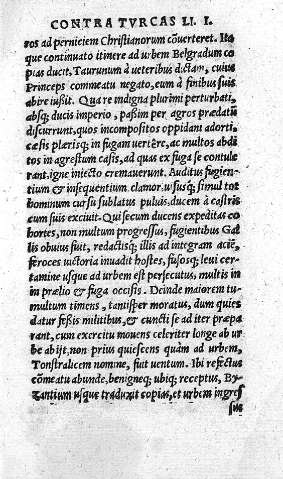 CONTRA TVRCAS LI. I.
ros ad perniciem Christianorum cōuerteret. Ita
que continuato itinere ad urbem Belgradum co
pias ducit, Taurunum à ueteribus dictam, cuius
Princeps commeatu negato, eum à finibus suis
abire iussit. Qua re indigna plurimi perturbati,
absq; ducis imperio, paßim per agros prædatū
discurrunt, quos incompositos oppidani adorti,
cæsis plærisq; in fugam uertêre, ac multos abdi
tos in agrestum casis, ad quas ex fuga se contule
rant, igne iniecto cremauerunt. Auditus fugien-
tium & insequentium clamor, uisusq; simul tot
hominum cursu sublatus puluis, ducem à castris
cum suis exciuit. Qui secum ducens expeditas co
hortes, non multum progressus, fugientibus Gal
lis obuius fuit, redactisq; illis ad integram aciē,
feroces uictoria inuadit hostes, fusosq; leui cer-
tamine usque ad urbem est persecutus, multis in
in prælio & fuga occisis. Deinde maiorem tu-
multum timens, tantisper moratus, dum quies
datur feßis militibus, & cuncti se ad iter præpa
rant, cum exercitu mouens celeriter longe ab ur
be abijt, non prius quiescens quàm ad urbem,
Tonstralicem nomine, fuit uentum. Ibi refectus
cōmeatu abunde, benigneq; ubiq; receptus, By-
zantium usque traduxit copias, et urbem ingres
sus